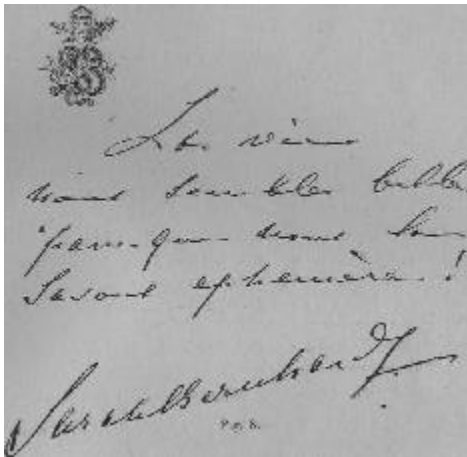 La vie
nous semble belle
parceque nous la
Savons ephemère !
Sarah Bernhardt